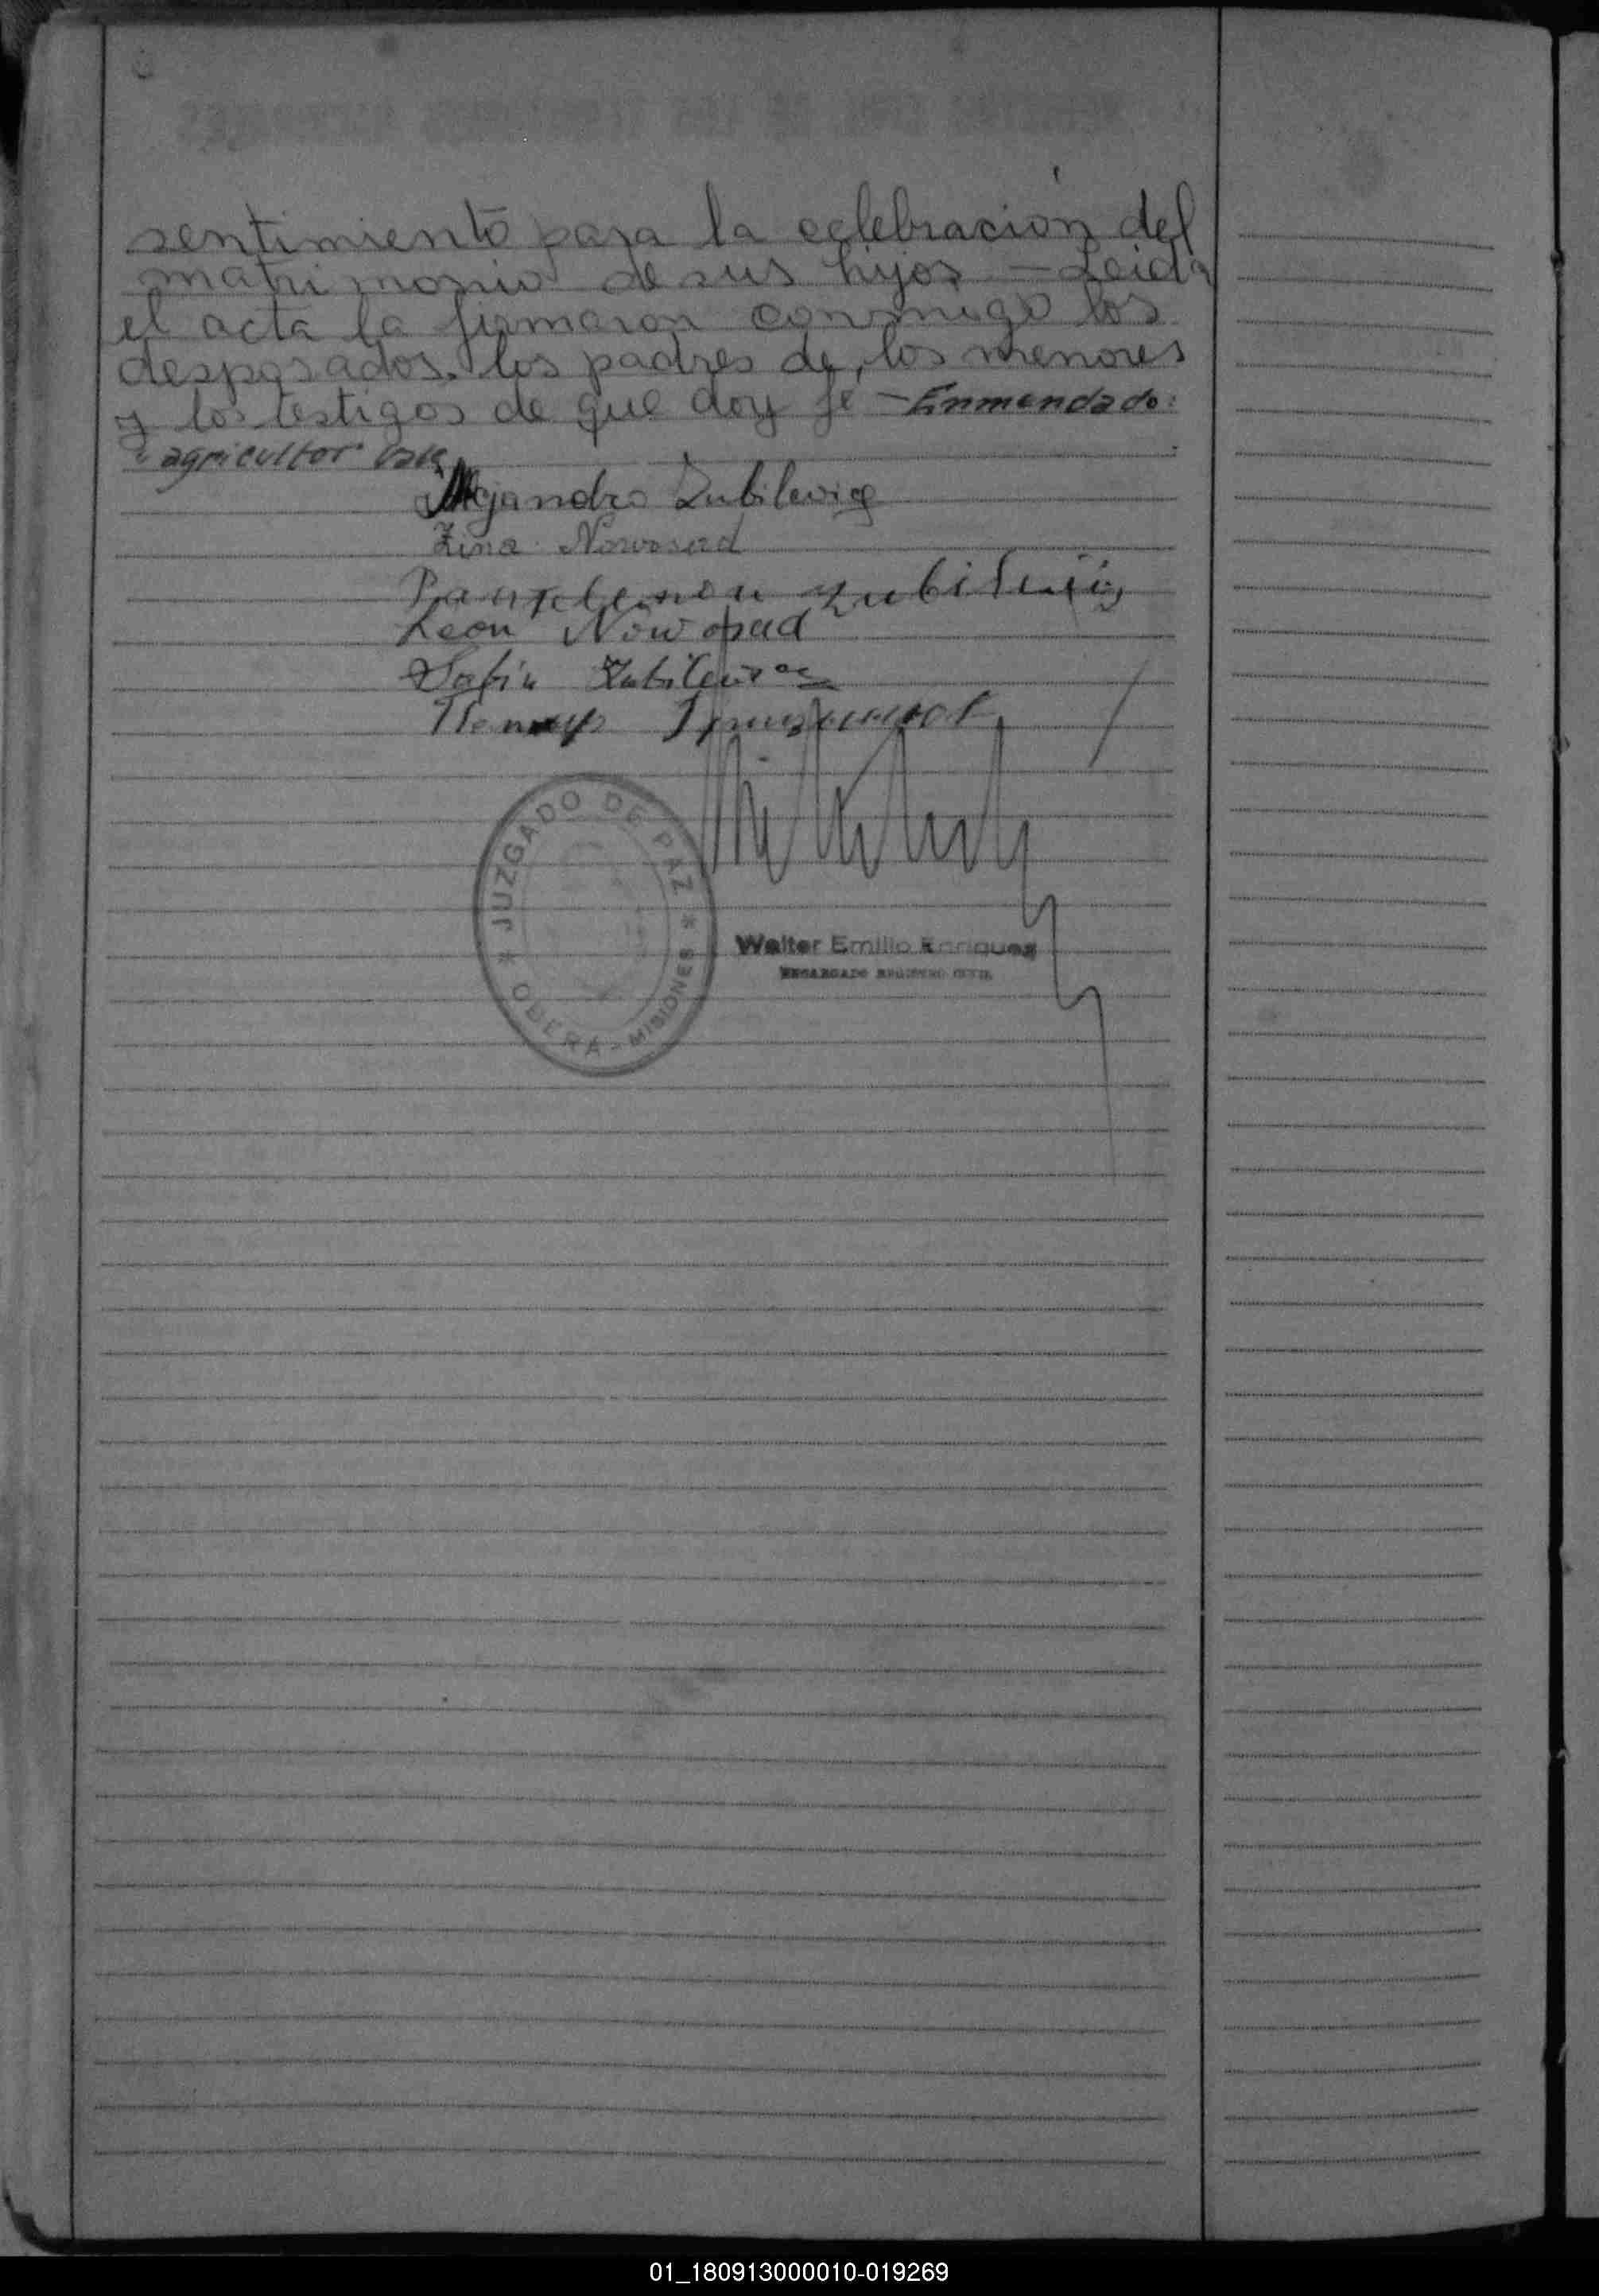 sentimiento para la celebración del
matrimonio de sus hijos - Leida
el acta la firmaron conmigo los
desposados, los padres de los menores
y los testigos de que doy fé - Enmendado:
"agricultor" Vale
Alejandro Zubilevicz
Zina Nowosad
Pantelemon Zubilewicz
Leon Nowosad
Sofia Zubilewicz
Петър
JUZGADO DE PAZ
* OBERA - MISIONES *
Walter Emilio Enriquez
ENCARGADO REGISTRO CIVIL
01_180913000010-019269